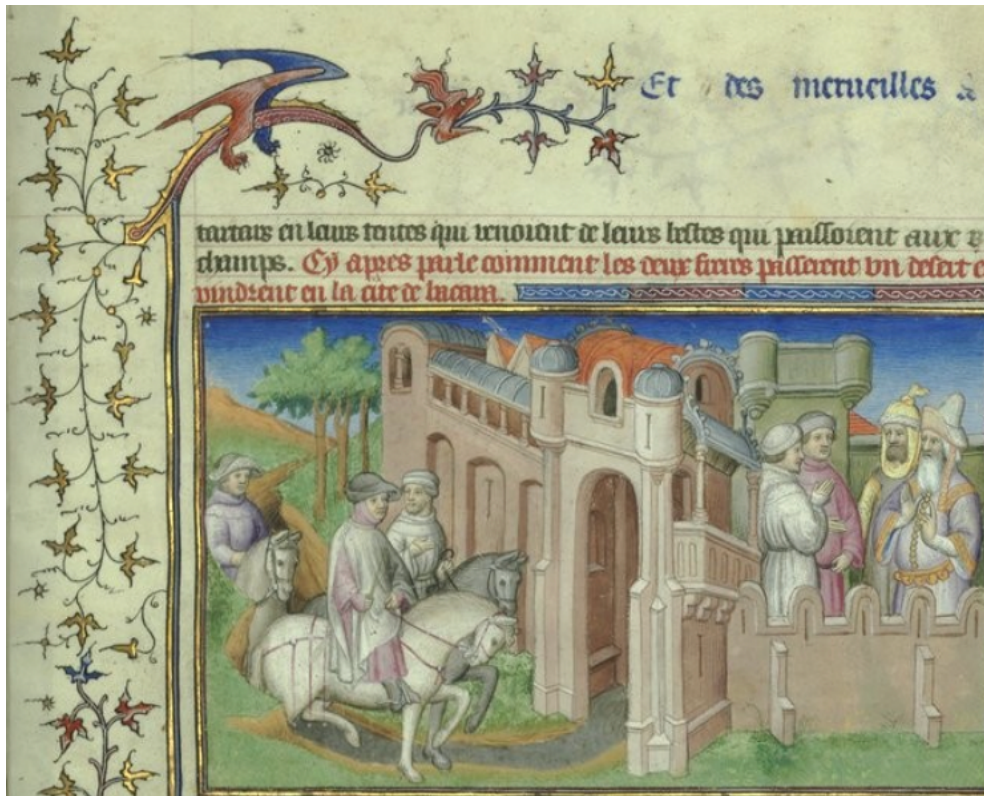 Et des merueilles &
tartars en leurs tentes qui venoient de leurs bestes qui paissoient aux
champs. Cy apres parle comment les deux freres passerent vn desert e
vindrent en la cite de bacara.